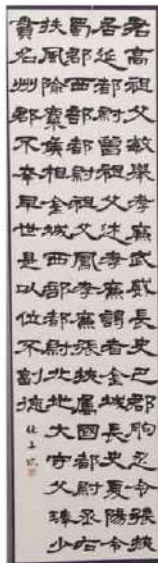 君高祖父敏舉孝廉武威長史巴郡朐忍令張掖
居延都尉曾祖父述孝廉謁者金城長史夏陽令
蜀郡西部都尉祖父鳳孝廉張掖屬國都尉丞右
扶風隃麋侯相金城西部都尉北地大守父琫少
貫名州郡不幸早世是以位不副德